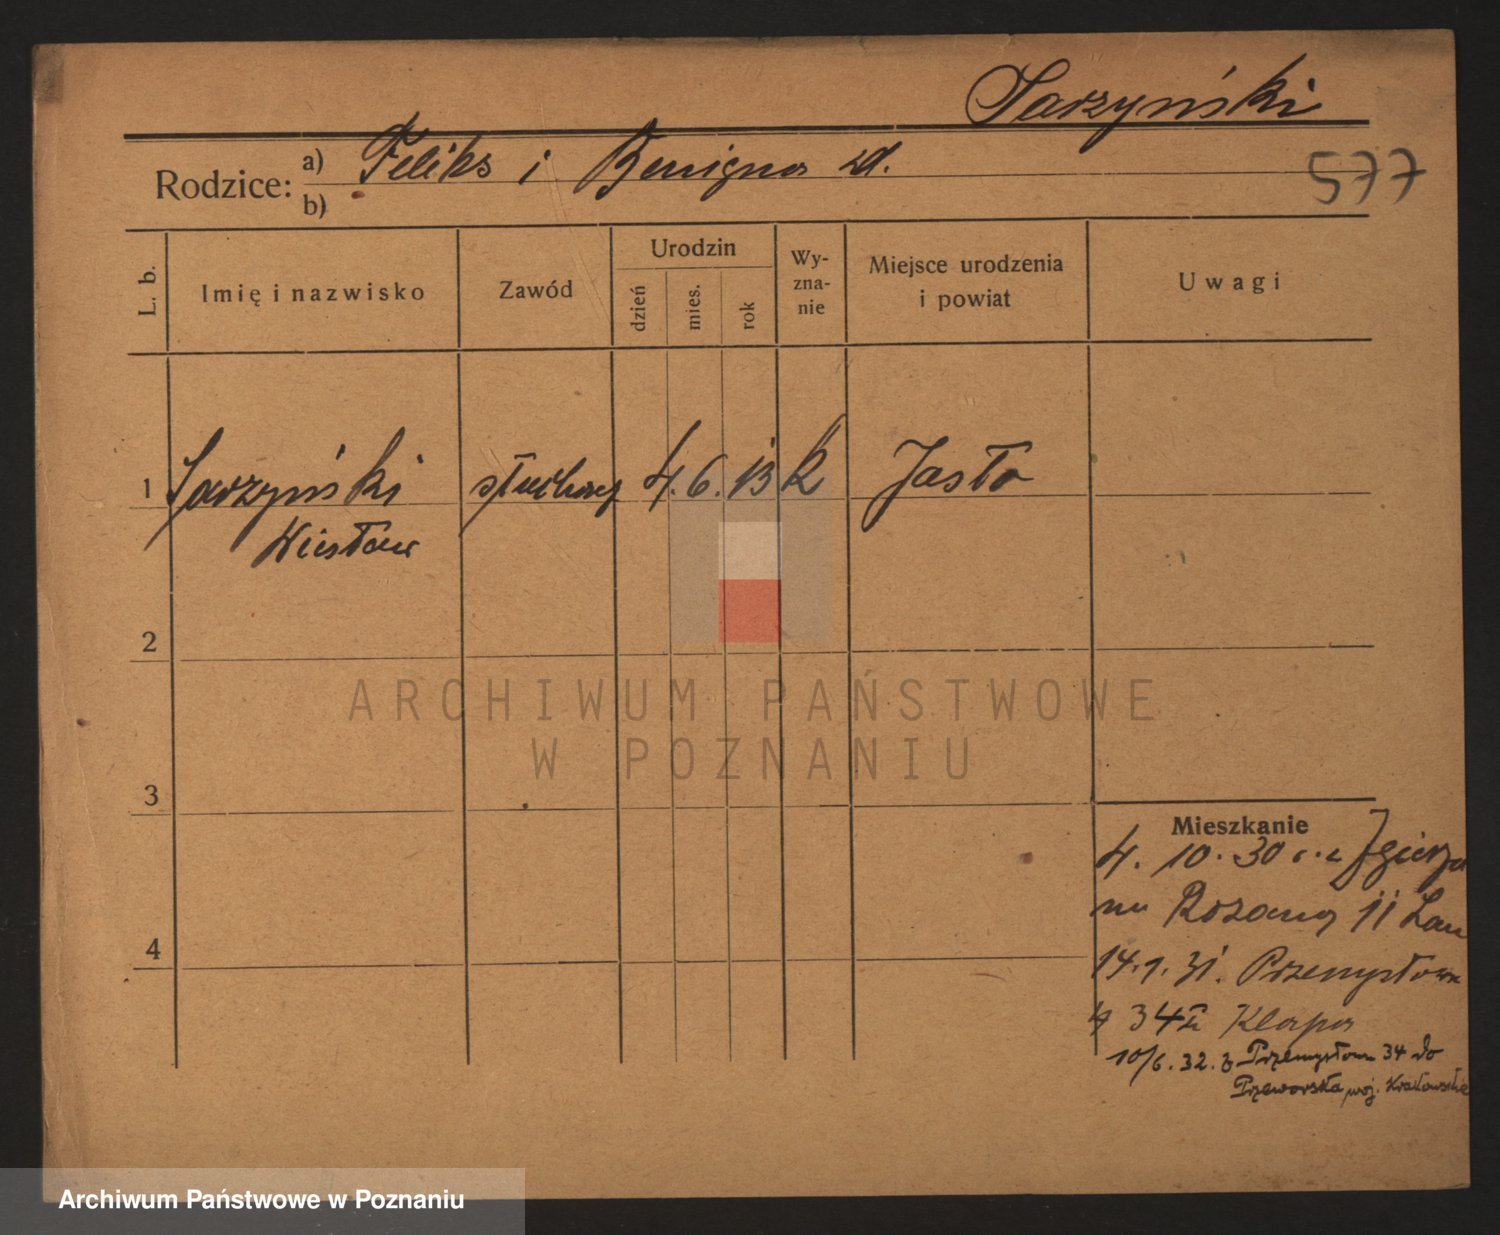 Sarzyński
Rodzice: a) Feliks i Benigna zd.
b)
577
L. b.
Imię i nazwisko
Zawód
Urodzin
dzień
mies.
rok
Wy-
zna-
nie
Miejsce urodzenia
i powiat
Uwagi
1 Sarzyński słuchacz 4. 6. 13 k Jasło
Wiesław
2
3
4
ARCHIWUM PAŃSTWOWE
W POZNANIU
Mieszkanie
4. 10. 30
na Różaną 11
14. 1. 31. Przemysłowa
34 Klapa
10/6. 32. z Przemysłowa 34 do
Przeworska woj. Krakowskie
Archiwum Państwowe w Poznaniu